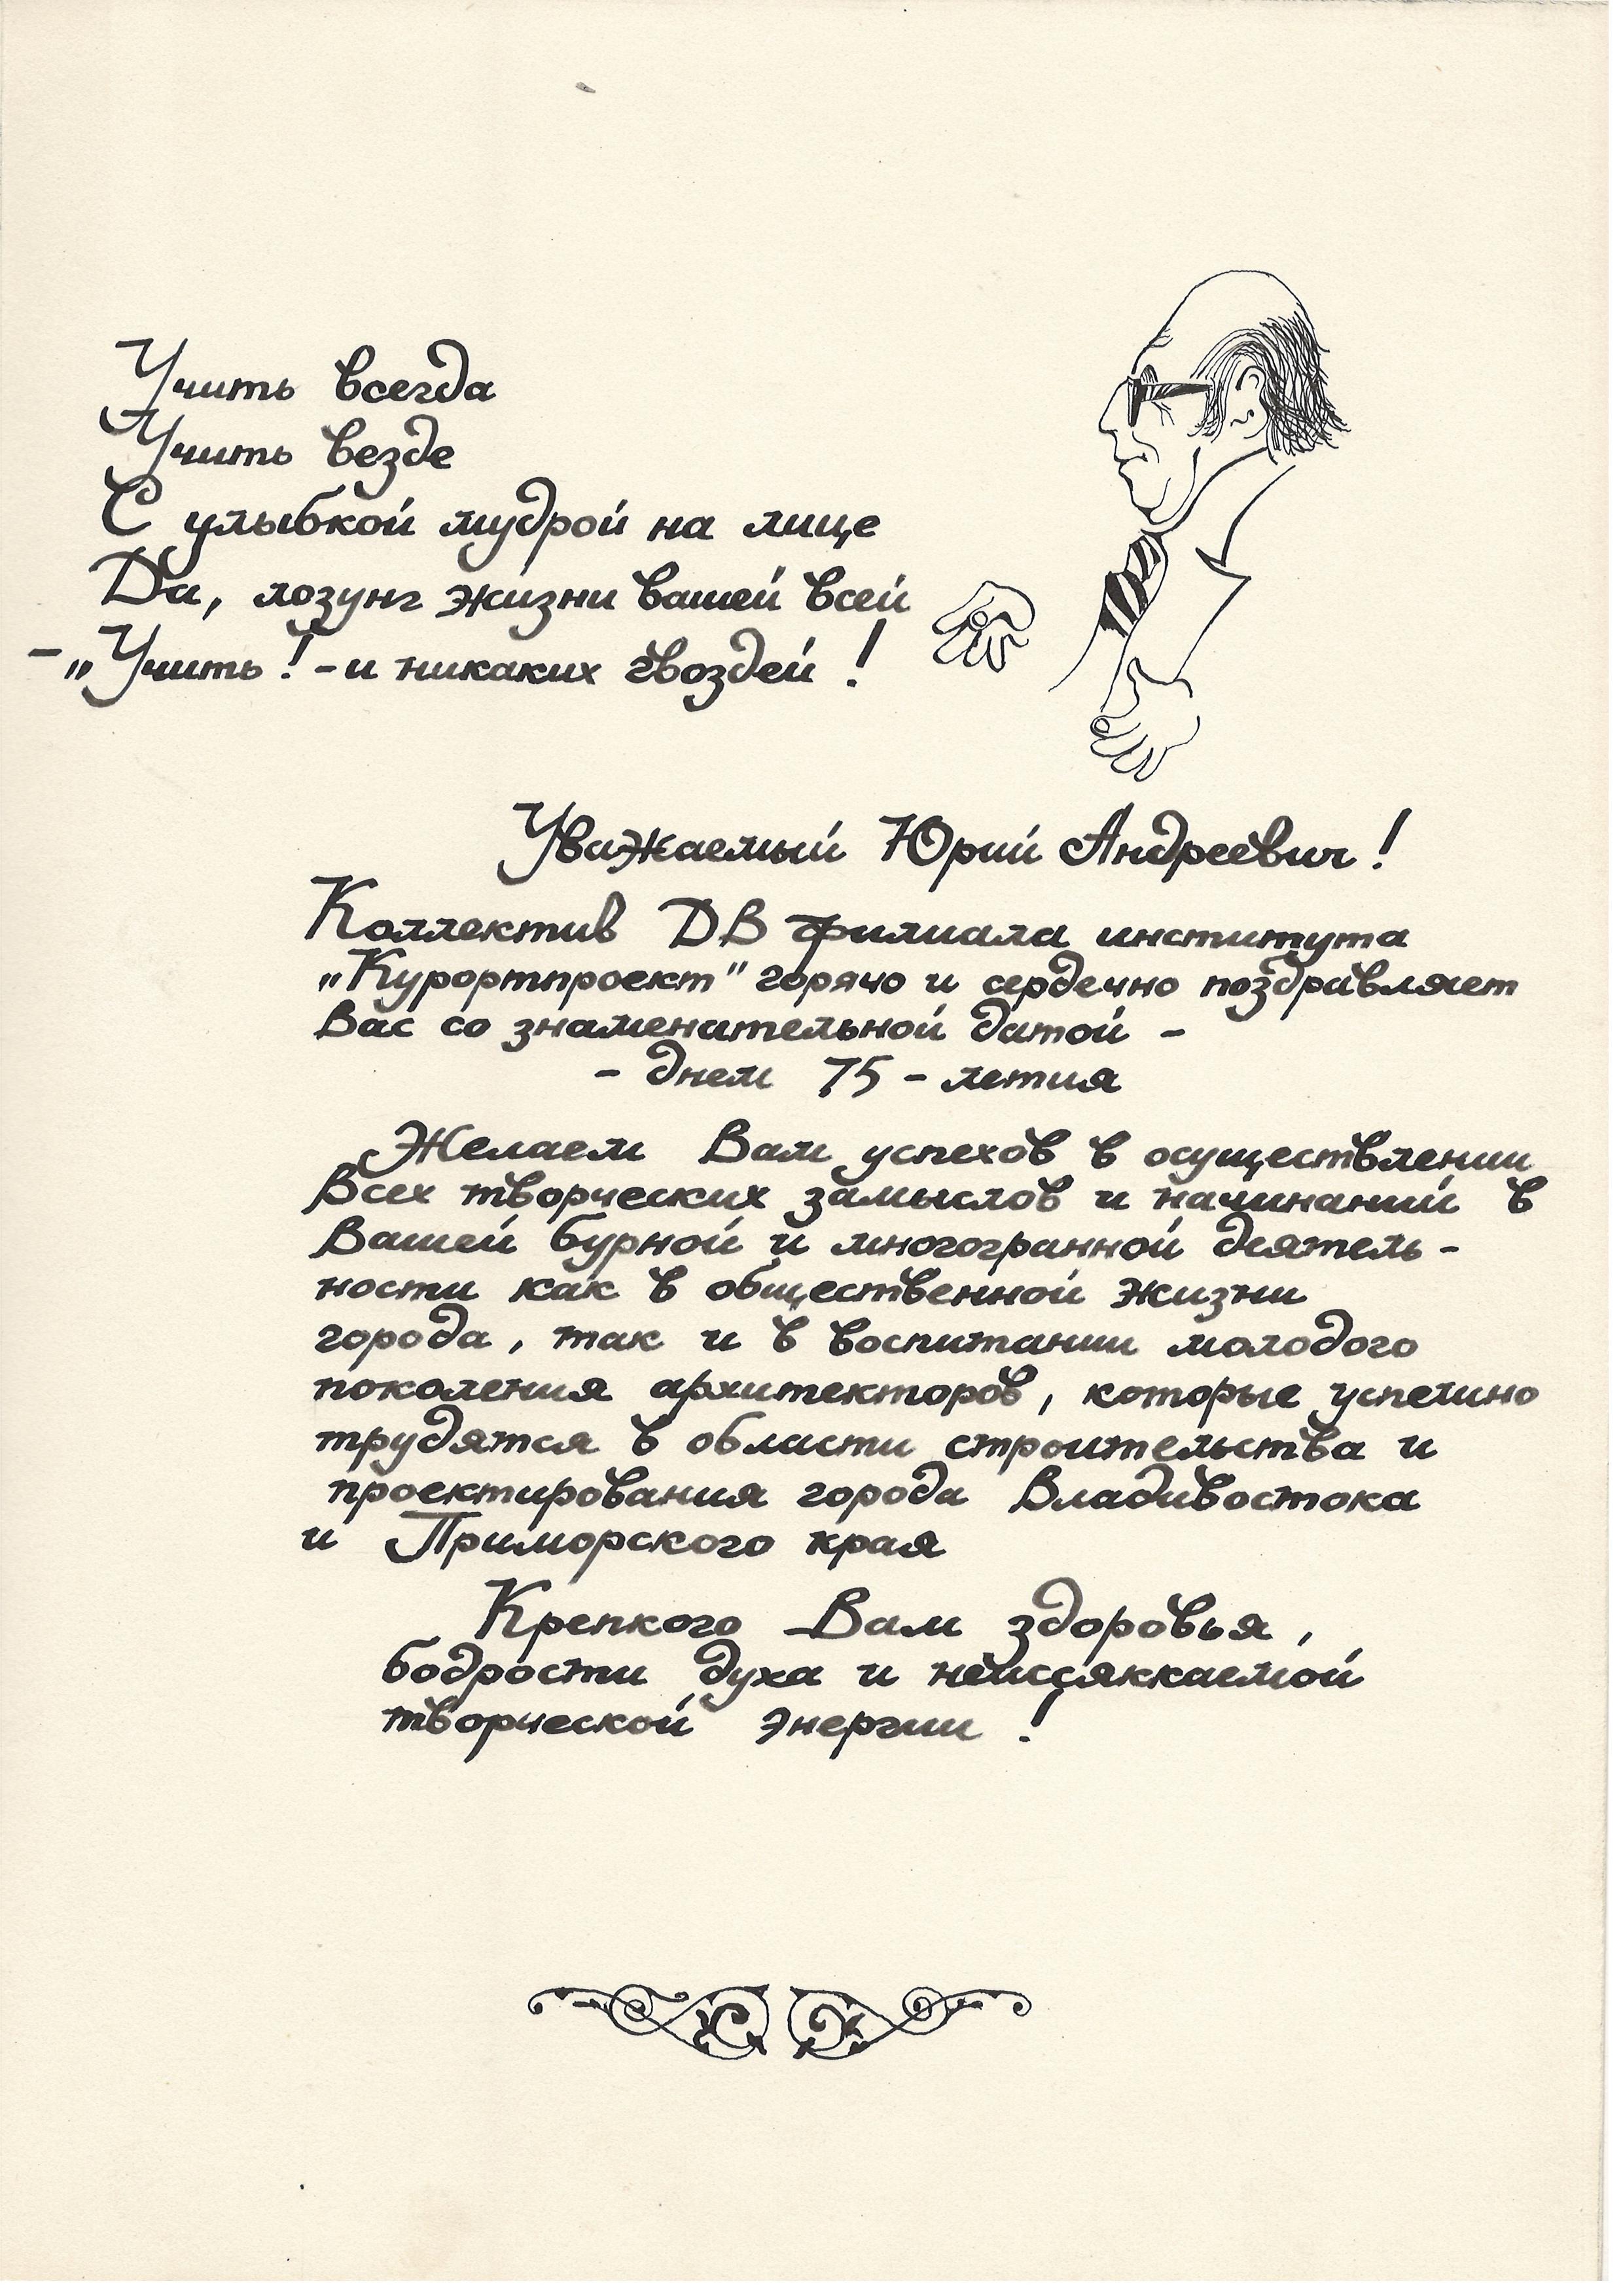 Учить всегда
Учить везде
С улыбкой мудрой на лице
Да, лозунг жизни вашей всей
- „Учить! - и никаких гвоздей!
Уважаемый Юрий Андреевич!
Коллектив ДВ филиала института
„Курортпроект" горячо и сердечно поздравляет
Вас со знаменательной датой -
- днем 75 - летия
Желаем Вам успехов в осуществлении
Всех творческих замыслов и начинаний в
Вашей бурной и многогранной деятель-
ности как в общественной жизни
города, так и в воспитании молодого
поколения архитекторов, которые успешно
трудятся в области строительства и
проектирования города Владивостока
и Приморского края
Крепкого Вам здоровья,
бодрости духа и неиссяккаемой
творческой энергии!